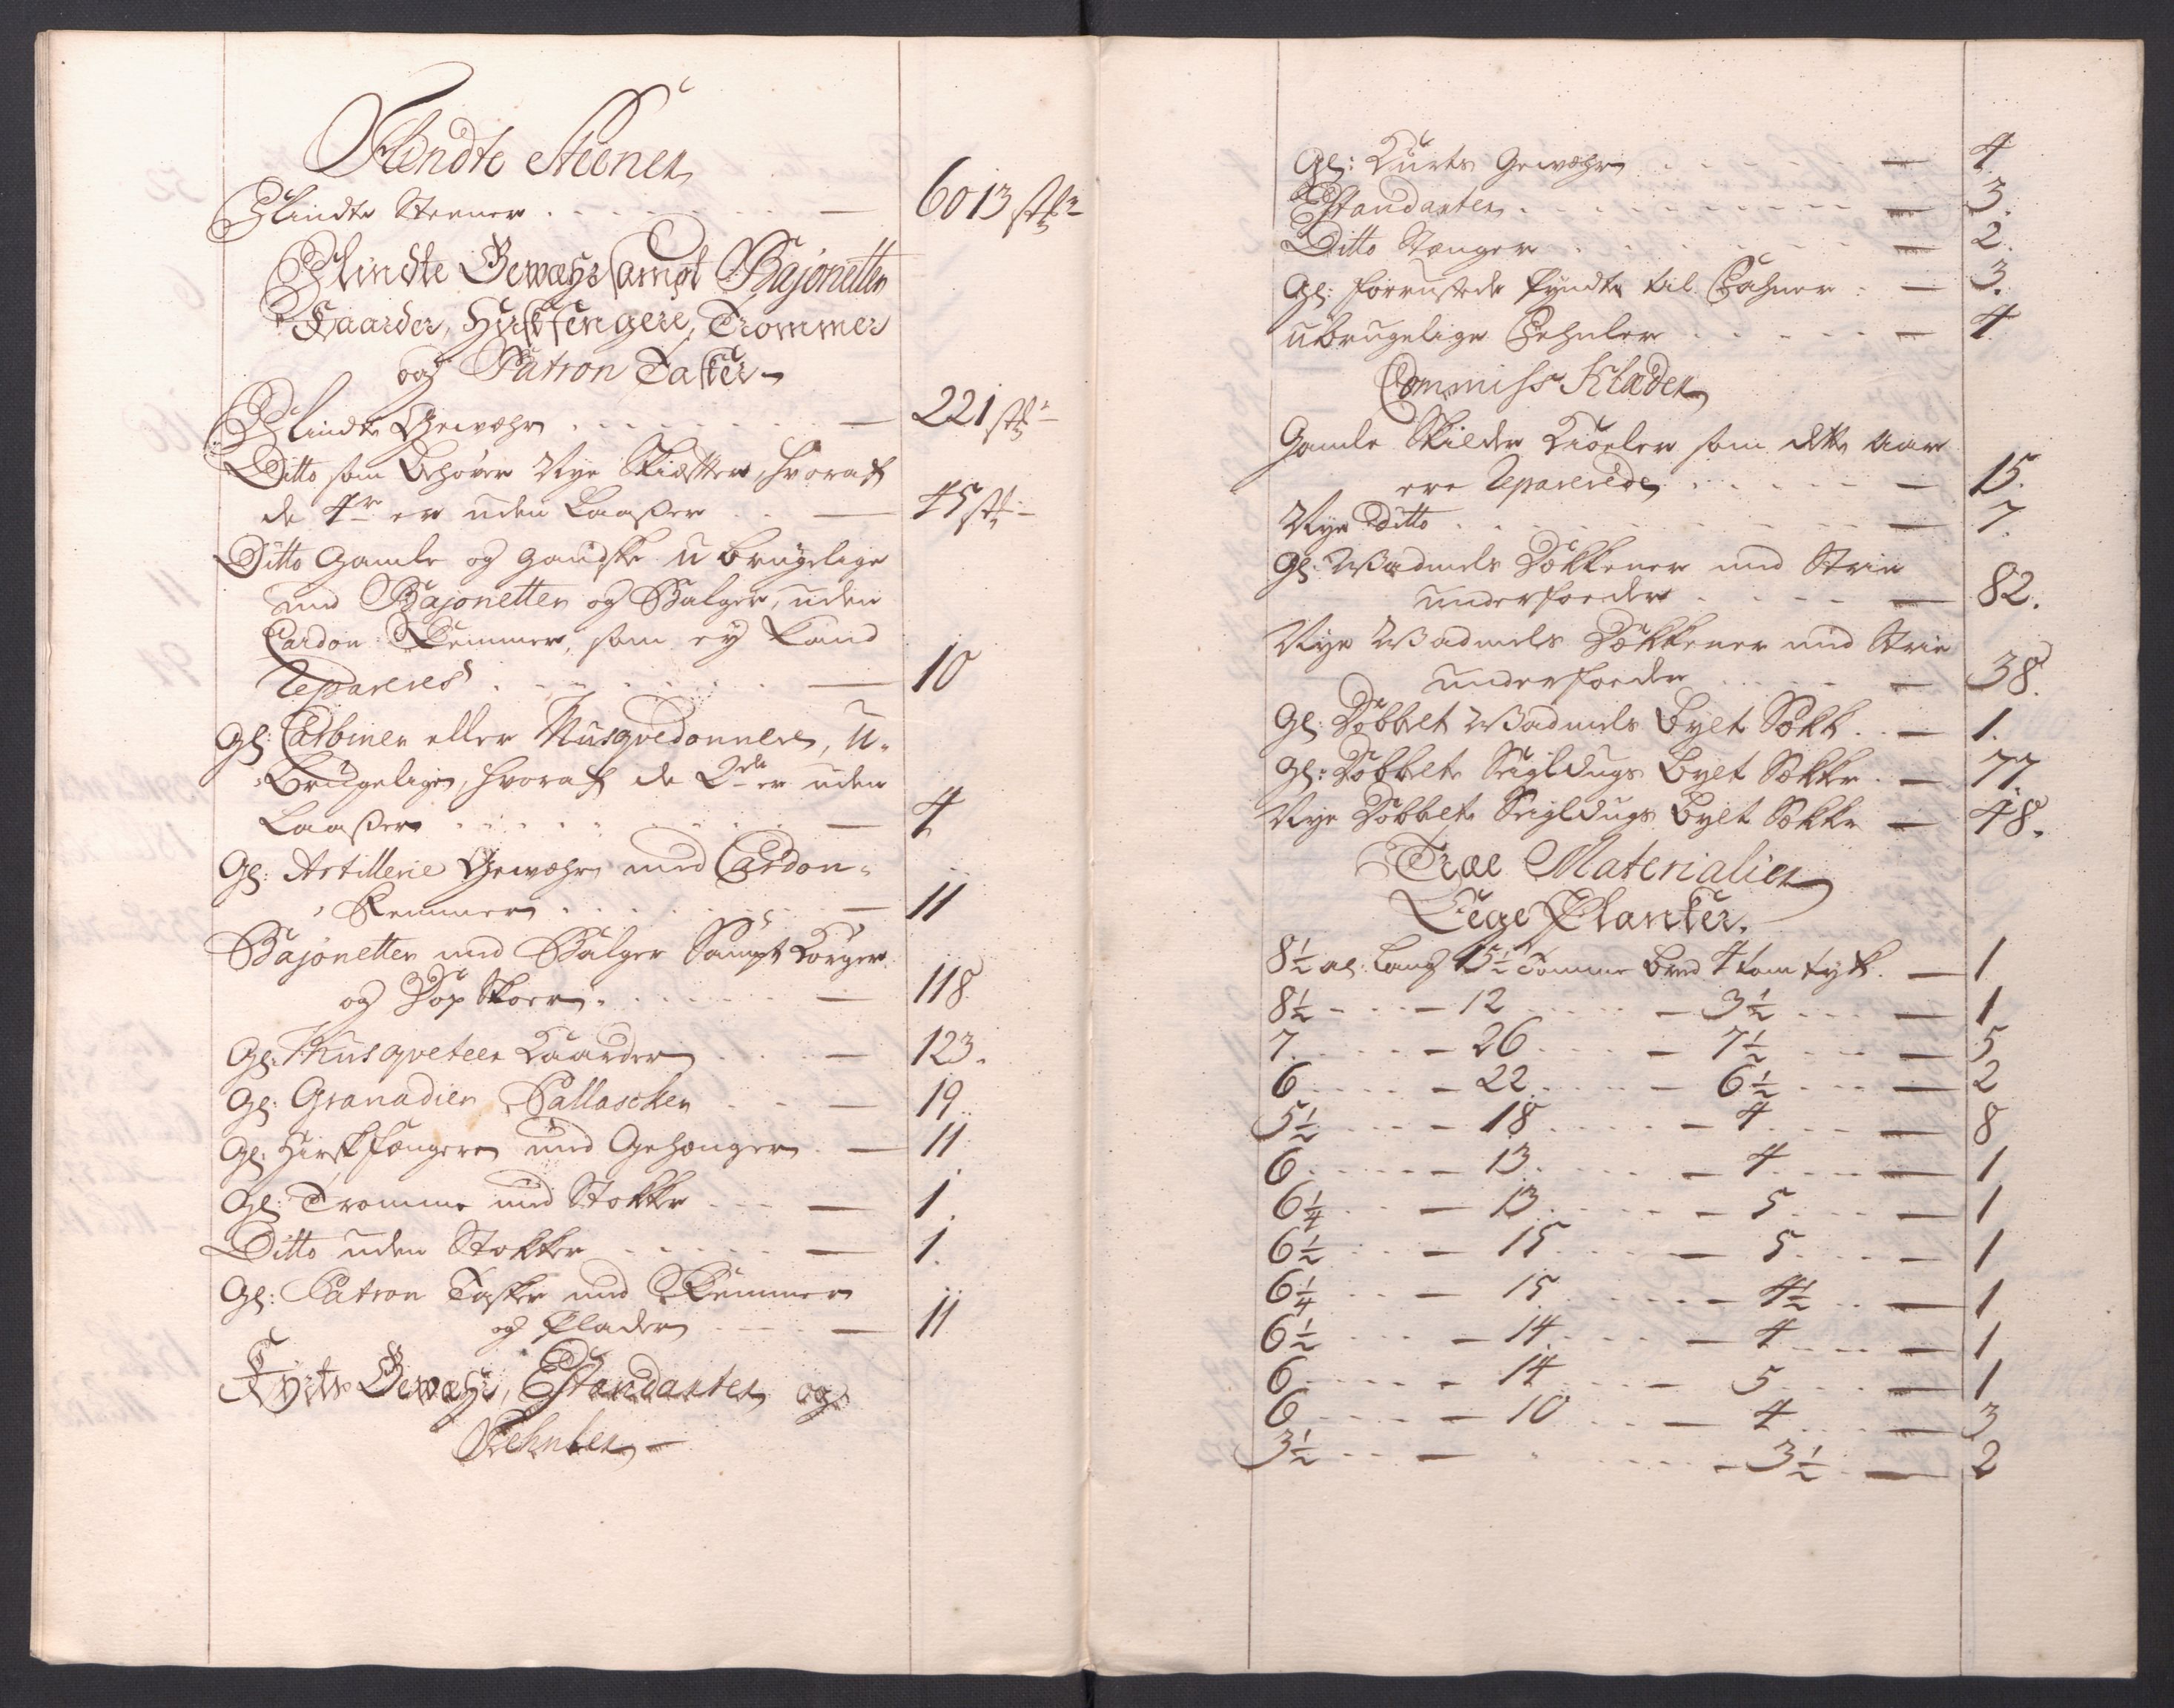 Flindte Steener
Flindte Steener — 6013 stk:
Flindte Gewæhr sampt Bajonetter
Kaarder, Hirschfengere, Trommer
og Patron Tasker
Flindte Gewæhr — 221 stk:
Ditto som behøver Nye Skiæfter, hvoraf
de 4re er uden Laaßer — 45 stk:
Ditto Gamle og gandske ubrugelige
med Bajonetter og Balger, uden
Cardon Remmer, som ey kand
Repareres — 10
Gl: Carbiner eller Musqvedonnere, U-
brugelige, hvoraf de 2de er uden
Laaßer — 4
Gl: Artillerie Gewæhr med Cardon-
Remmer — 11
Bajonetter med Balger Sampt Korger
og Dop Skoer — 118
Gl: Musqveteer Kaarder — 123.
Gl: Granadier Pallascher — 19
Gl: Hirschfængere med Gehænger — 11
Gl: Tromme med Stokke — 1.
Ditto uden Stokker — 1.
Gl: Patron Tasker med Remmer
og Plader — 11
Kyrtz Gewæhr, Estandarter og
Fehnler
Gl: Kurtz Gewæhr — 4
Estandarter — 3.
Ditto Stænger — 2.
Gl: forrustede Pyndte til Fahner — 3.
ubrugelige Fehnler — 4
Commiss Klæder
Gamle Skilder Kioeler som dette Aar
ere Reparerede — 15.
Nye Ditto — 7.
Gl: Wadmels Dækkener med Strie
underfoeder — 82.
Nye Wadmels Dækkener med Strie
underfoeder — 38.
Gl: Dobbelt Wadmels Bylt Sæk — 1.
Gl: Dobbelte Seigldugs Bylt Sække — 77.
Nye Dobbelte Seigldugs Bylt Sække — 48.
Træe Materialier
Eege Planker.
8½ al: lang 15½ Tomme bred 4 tom tyk. — 1
8½ — 12 — 3½ — 1
7 — 26 — 7½ — 5
6 — 22 — 6½ — 2
5½ — 18 — 4 — 8
6 — 13 — 4 — 1
6¼ — 13 — 5 — 1
6½ — 15 — 5 — 1
6¼ — 15 — 4½ — 1
6½ — 14 — 4 — 1
6 — 14 — 5 — 1
6 — 10 — 4 — 3
3½ — — 3½ — 2